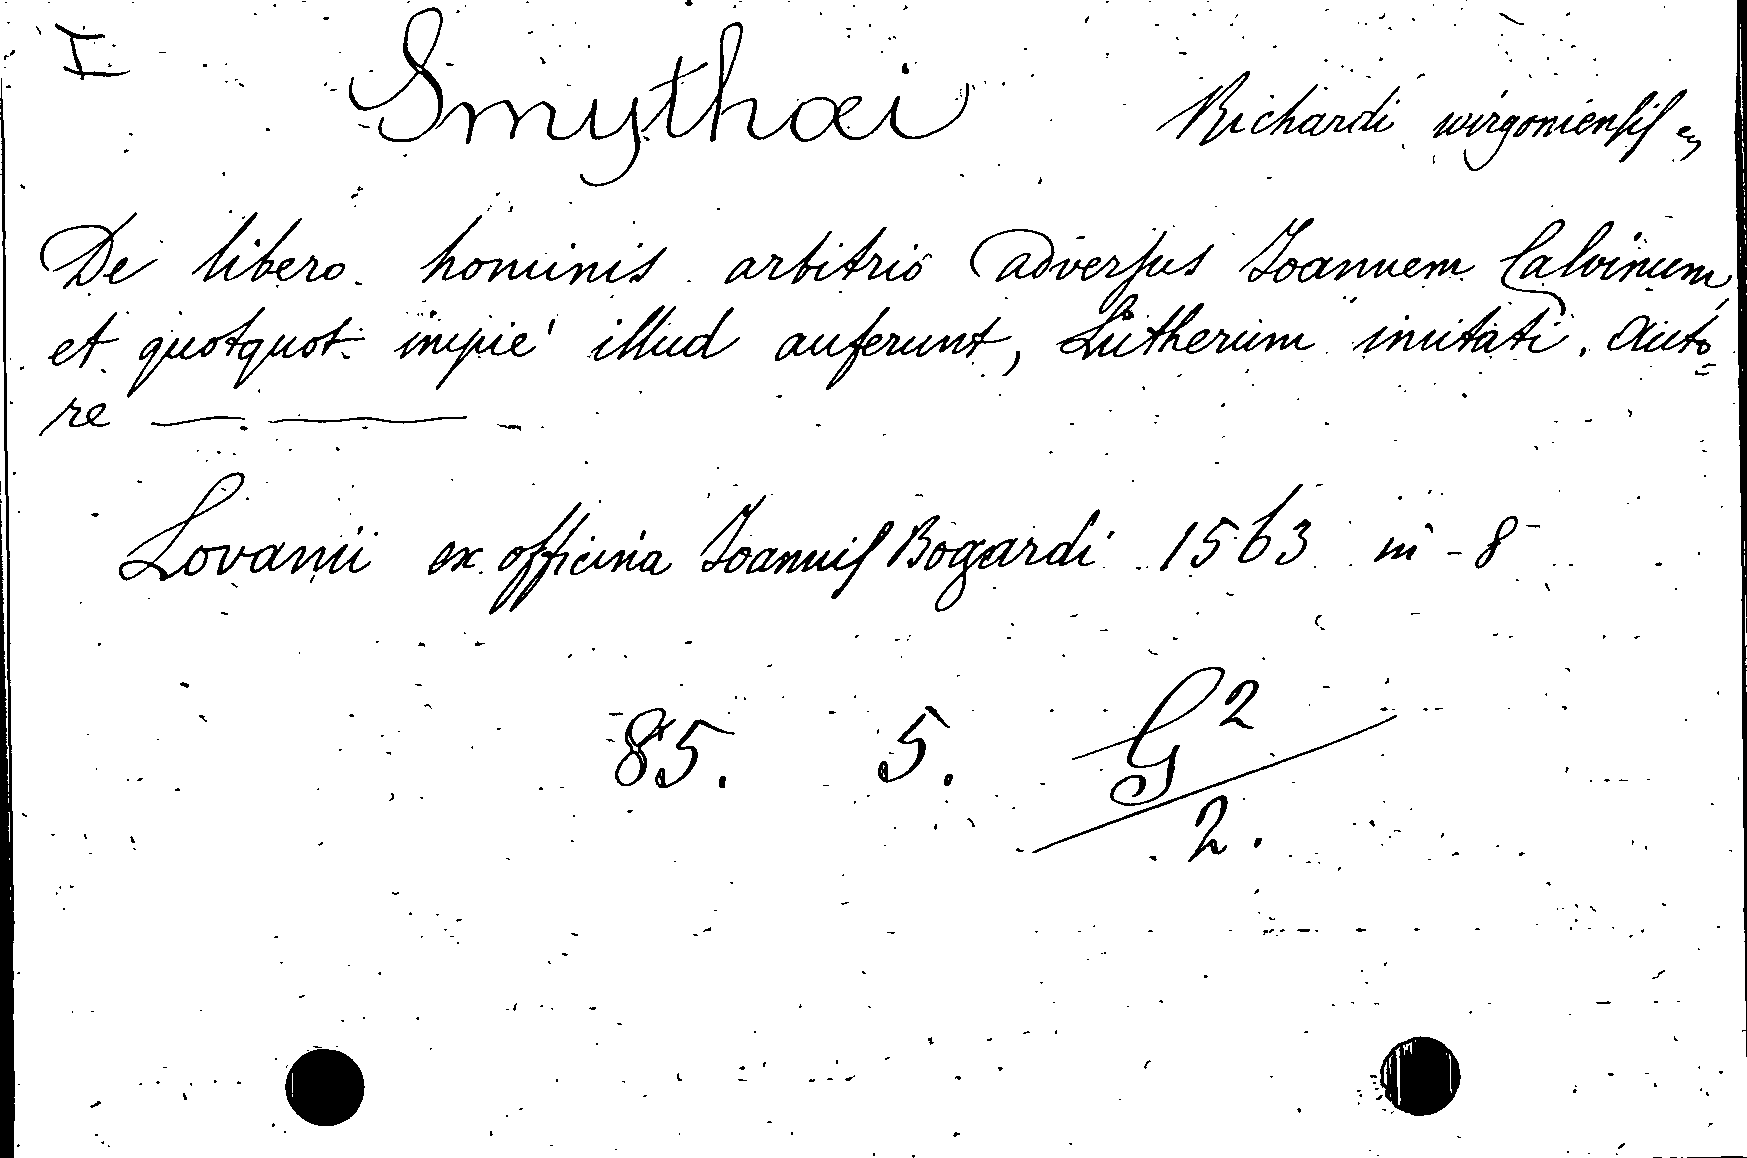 I
Smythæi Richardi wirgoniensis
De libero hominis arbitrio adversus Joannem Calvinum,
et quotquot impie illud auferunt, Lutherum imitati. Auto=
re
Lovanii ex officina Joannis Bogardi 1563 in-8
85. 5. G²/2.